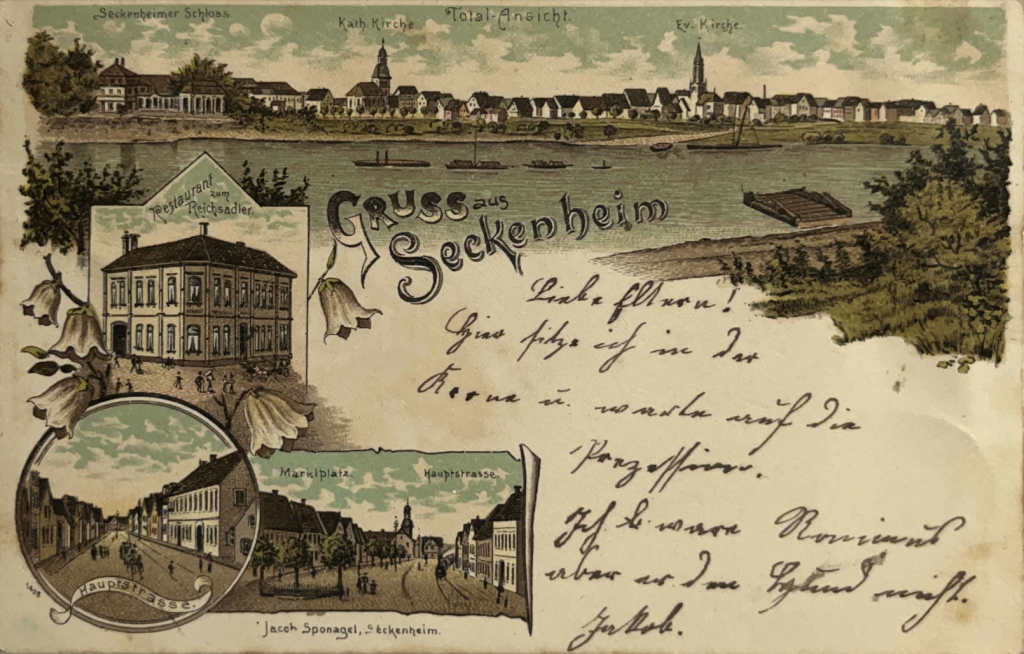 Seckenheimer Schloss
Kath. Kirche
Total-Ansicht.
Ev. Kirche.
Restaurant
zum
Reichsadler.
Gruss aus
Seckenheim
Liebe Eltern!
Hier sitze ich in der
Krone u. warte auf die
Prozession.
Ich
aber er den nicht.
Jakob.
Marktplatz.
Hauptstrasse.
Hauptstrasse.
Jacob Sponagel, Seckenheim.